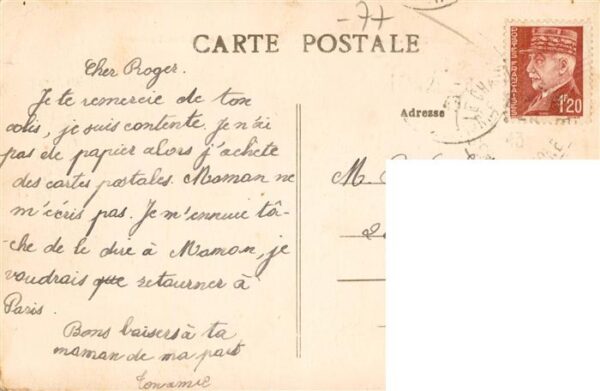 -77
CARTE POSTALE
Cher Roger.
Je te remercie de ton
colis, je suis contente. Je n'ai
pas de papier alors j'achète
des cartes postales. Maman ne
m'écris pas. Je m'ennuie tâ-
che de le dire à Maman, je
voudrais que retourner à
Paris.
Bons baisers à ta
maman de ma part
Ton amie
Adresse
M.
1F20